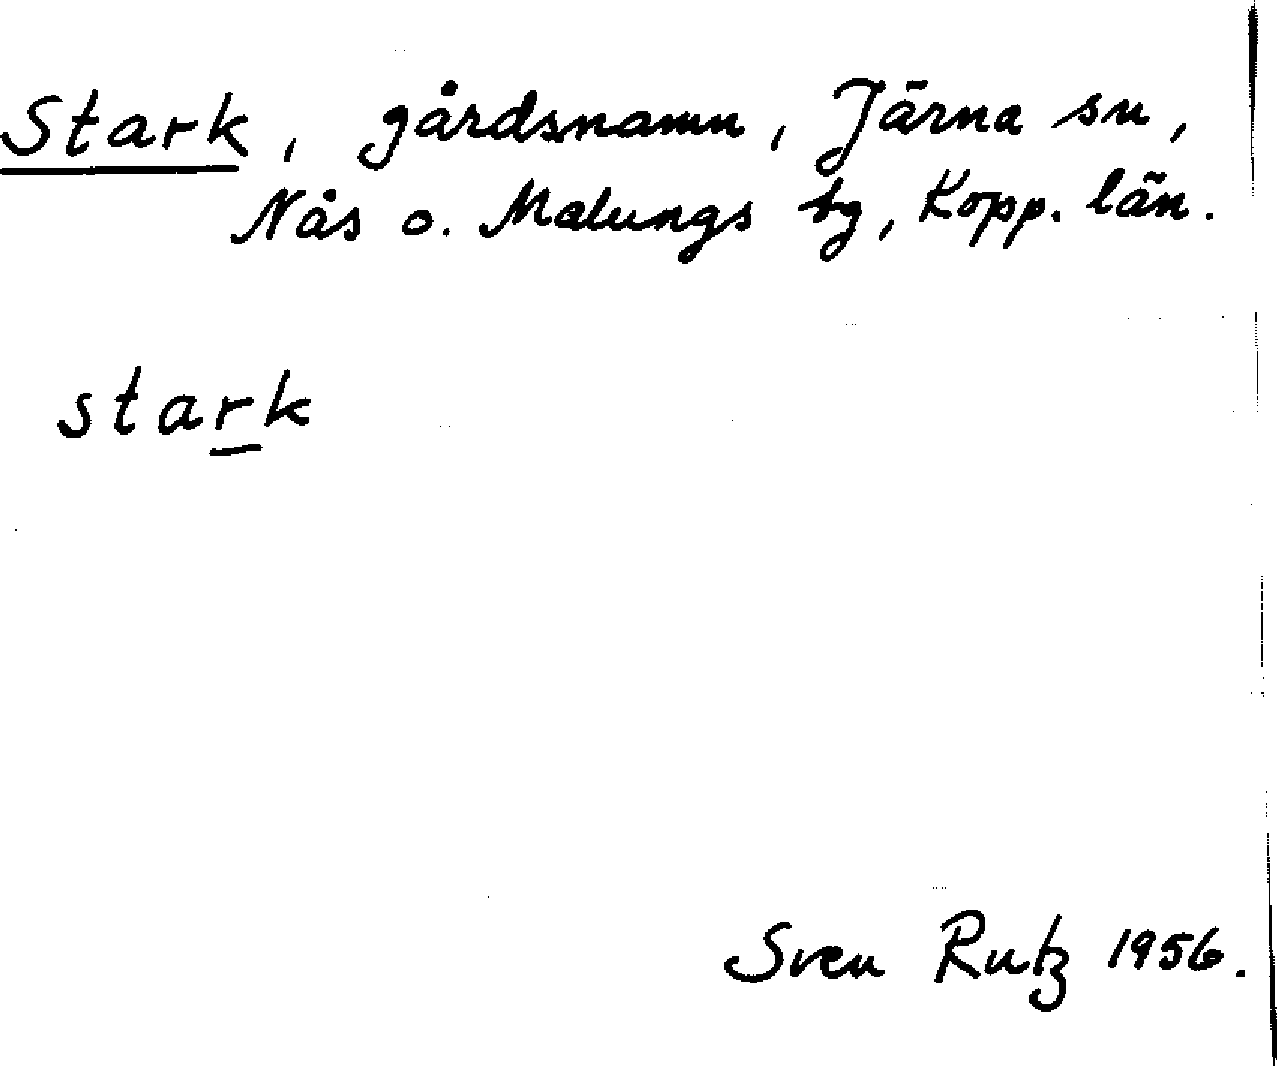 Stark, gårdsnamn, Järna sn,
Nås o. Malungs tg, Kopp. län.
stark
Sven Rutz 1956.